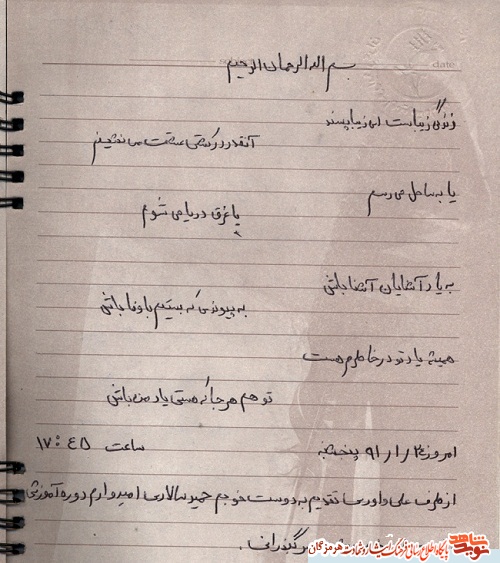 بسم الله الرحمان الرحیم
date
زندگی زیباست ای زیبا پسند
آنقدر در کشتی عشقت می نشینم
یا به ساحل می رسم
یا غرق دریا می شوم
به یاد آشنایان آشنا باش
به پیوندی که بستیم باوفا باش
همیشه یاد تو در خاطرم هست
تو هم هر جا که هستی یاد من باش
امروز ۹۱/۱/ پنجشنبه ساعت ۱۷:۴۵
از طرف علی داوری تقدیم به دوست خوبم حمید سالاری امیدوارم دوره آموزشی
بگذرانی.
نوید شاهد
پایگاه اطلاع رسانی فرهنگ ایثار و شهادت هرمزگان